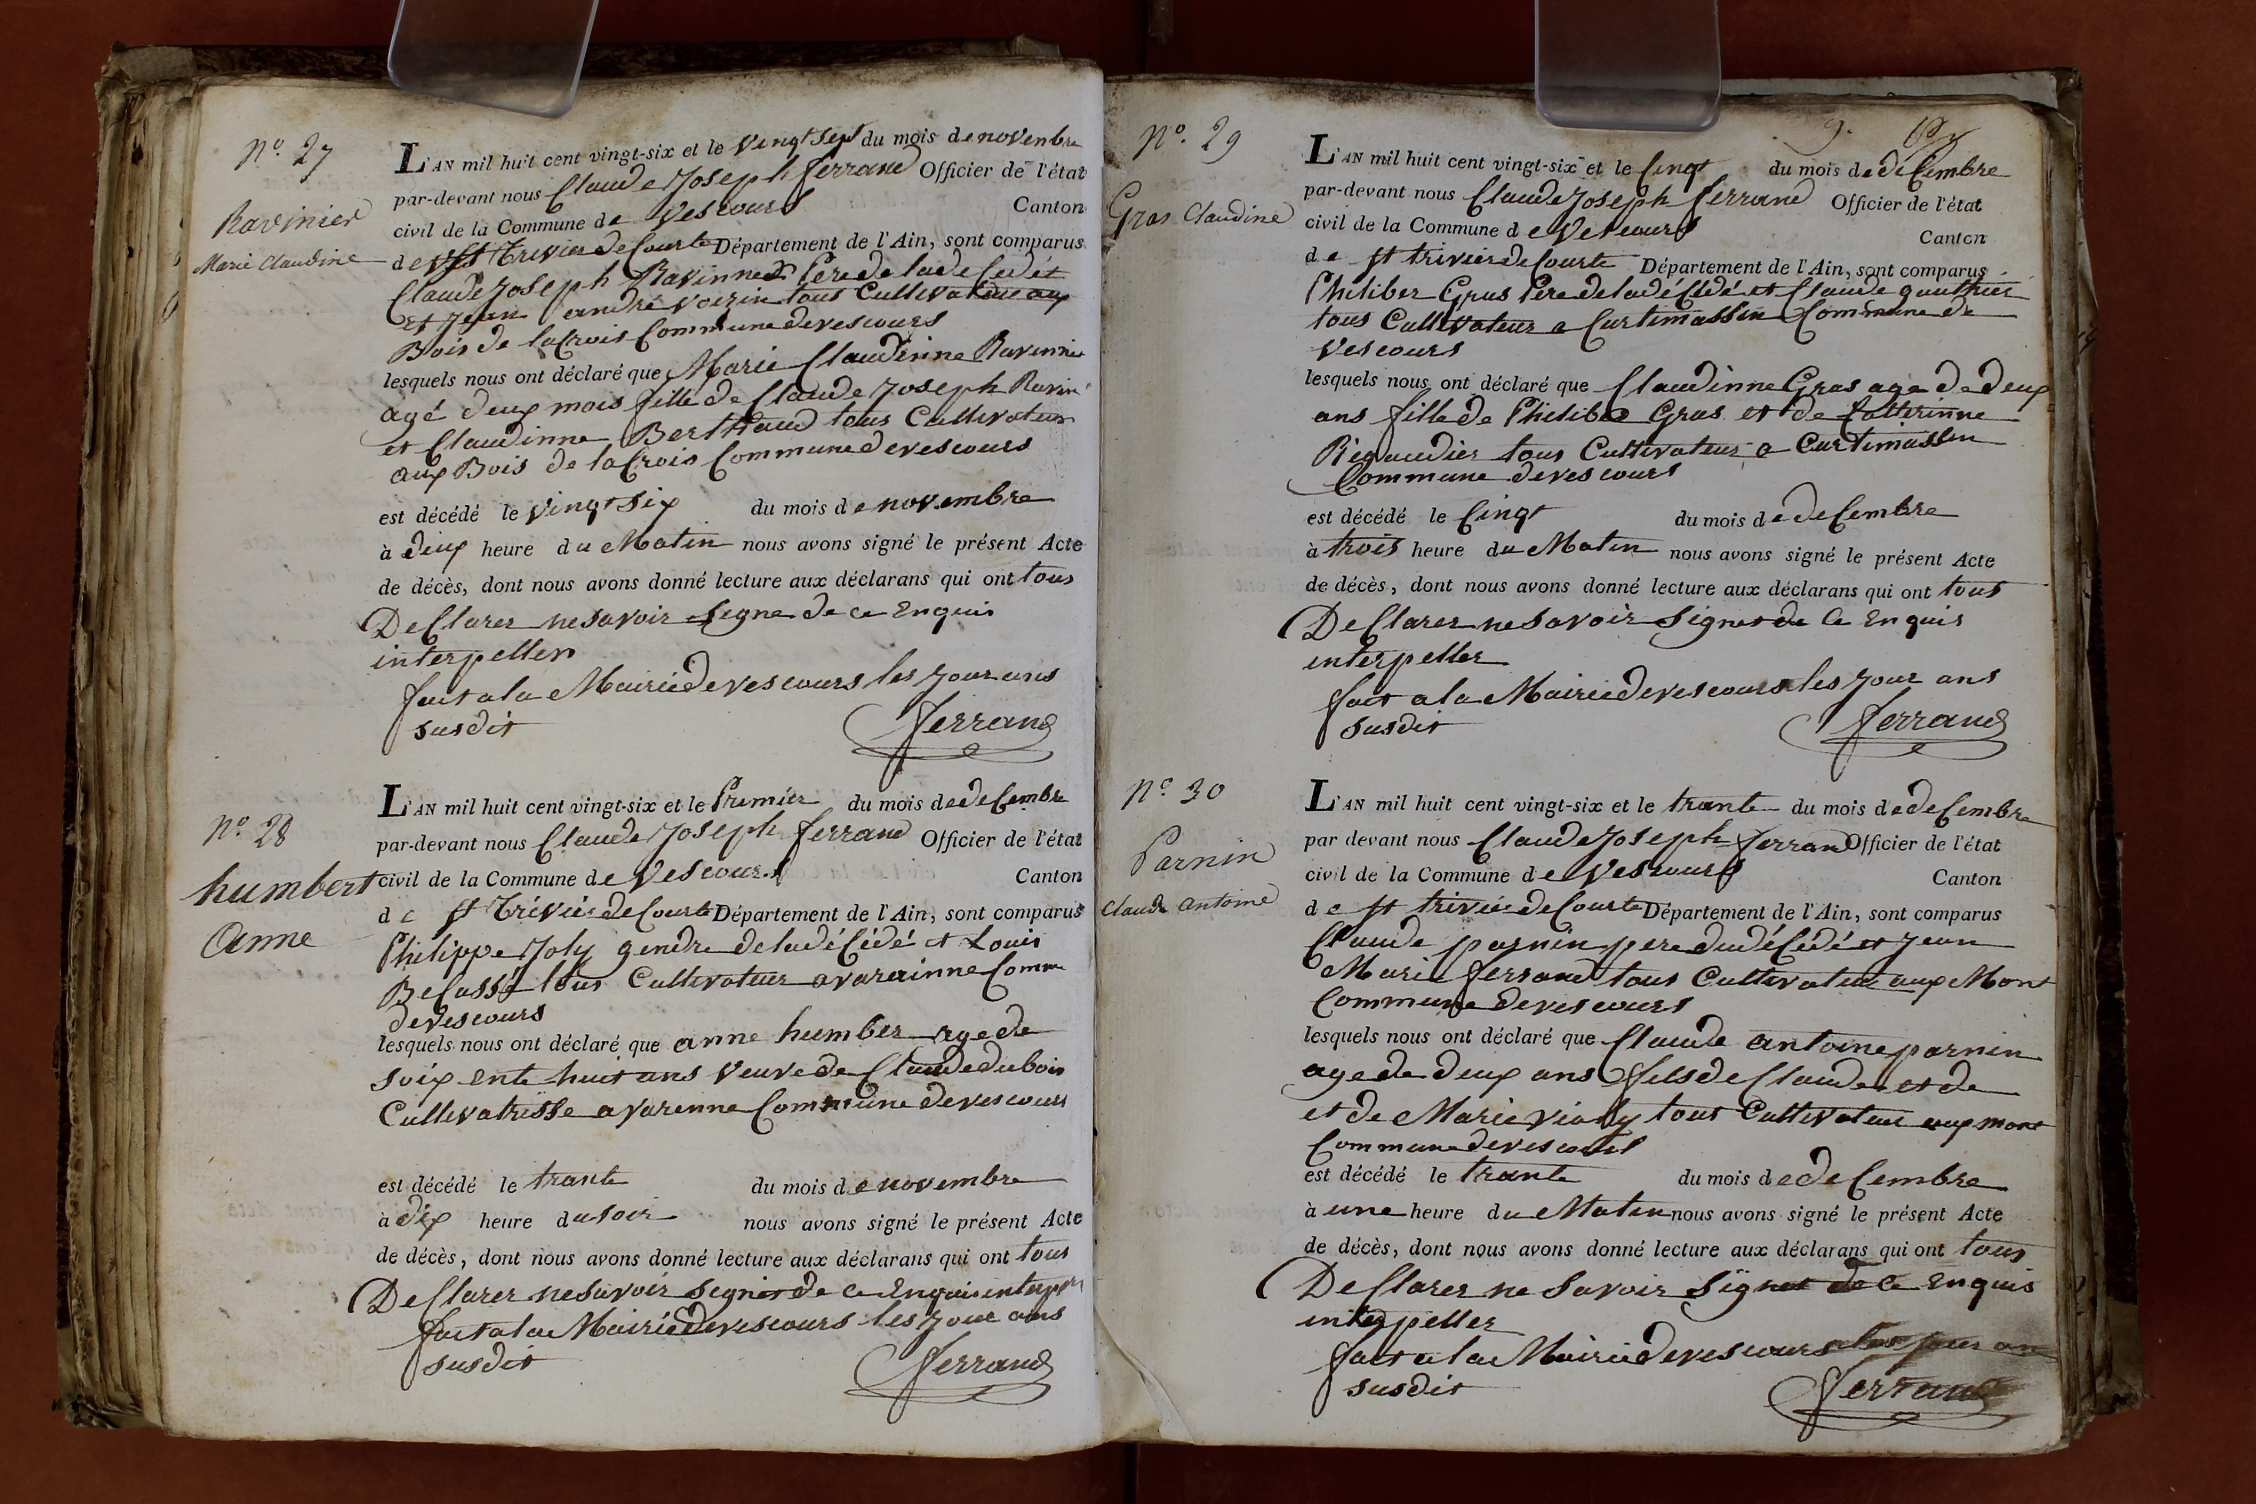 N.º 27
Ravinier
Marie Claudine
L'AN mil huit cent vingt-six et le vingt sept du mois de novembre
par-devant nous Claude Joseph ferrand Officier de l'état
civil de la Commune de Vescours Canton
de St Trivier de Courte Département de l'Ain, sont comparus
Claude Joseph Ravinnez Pere de la de Cedét
et Jean andré voizin tous Cultivateur aux
Bois de la Crois Commune de vescours
lesquels nous ont déclaré que Marie Claudinne Ravinnier
agé deux mois fille de Claude Joseph Ravin
et Claudinne Berthaud tous Cultivateur
aux Bois de la Crois Commune de vescours
est décédé le vingt six du mois de novembre
à deux heure du Matin nous avons signé le présent Acte
de décès, dont nous avons donné lecture aux déclarans qui ont tous
De Clarer ne savoir Segne de ce Enquis
interpeller
fait a la Mairie de vescours les Jour ans
susdit
ferrand
N.º 28
humbert
Anne
L'AN mil huit cent vingt-six et le Premier du mois de de Cembre
par-devant nous Claude Joseph ferrand Officier de l'état
civil de la Commune de Vescours Canton
de St Trivier de Courte Département de l'Ain, sont comparus
Philippe Joly gendre de la dé Cédé et Louis
Becassé tous Cultivateur a varainne Comm
de vescours
lesquels nous ont déclaré que anne humber age de
soix ente huit ans veuve de Claude dubois
Cultivatrisse a varenne Commune de vescours
est décédé le trante du mois de novembre
à dix heure du soir nous avons signé le présent Acte
de décès, dont nous avons donné lecture aux déclarans qui ont tous
De Clarer ne savoir Segner de ce Enquis
fait a la Mairie de vescours les Jour ans
susdit
ferrand
N.º 29
Gras Claudine
L'AN mil huit cent vingt-six et le Cinqt du mois de de Cembre
par-devant nous Claude Joseph ferrand Officier de l'état
civil de la Commune de Vescours Canton
de St trivier de Courte Département de l'Ain, sont comparus
Philiber Gras Pere de la dé Cédé et Claude gauthier
tous Cultivateur a Curtimassin Commune de
vescours
lesquels nous ont déclaré que Claudinne Gras age de deux
ans fille de Philibe Gras et de Catterinne
Rigaudier tous Cultivateur a Curtimassin
Commune de vescours
est décédé le Cinqt du mois de de Cembre
à trois heure du Matin nous avons signé le présent Acte
de décès, dont nous avons donné lecture aux déclarans qui ont tous
De Clarer ne savoir Signer de Ce Enquis
interpeller
fait a la Mairie de vescours les Jour ans
susdit
ferrand
N.º 30
Parnin
Claude antoine
L'AN mil huit cent vingt-six et le trante du mois de de Cembre
par devant nous Claude Joseph ferrand Officier de l'état
civil de la Commune de Vescours Canton
de St trivier de Courte Département de l'Ain, sont comparus
Claude parnin pere du dé Cédé et Jean
Marie ferrand tous Cultivateur aux Mont
Commune de vescours
lesquels nous ont déclaré que Claude antoine parnin
age de deux ans fils de Claude et de
et de Marie vialy tous Cultivateur aux mont
Commune de vescours
est décédé le trante du mois de de Cembre
à une heure du Matin nous avons signé le présent Acte
de décès, dont nous avons donné lecture aux déclarans qui ont tous
De Clarer ne Savoir Signer de Ce Enquis
interpeller
fait a la Mairie de vescours les jour an
susdit
ferrand